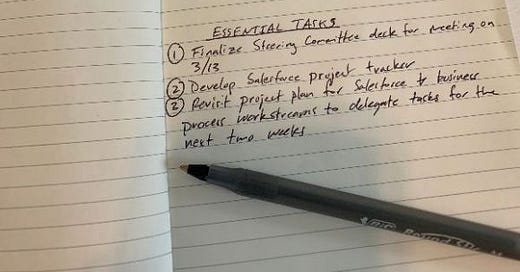 ESSENTIAL TASKS
① Finalize Steering Committee deck for meeting on
3/13
② Develop Salesforce project tracker
③ Revisit project plan for Salesforce & business
process workstreams to delegate tasks for the
next two weeks
BIC Round Stic M